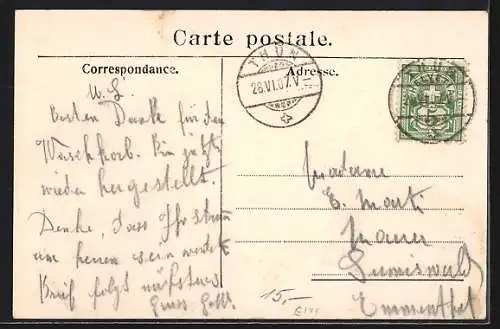 Carte postale.
Correspondance.
Adresse.
THUN
26.VI.07.V
HELVETIA
5
W. L.
Besten Dank für den
Waschkorb. Bin jetzt
wieder hergestellt.
Denke, dass Ihr
am heuen sein werdet.
Brief folgt nächstens
Gruss
Madame
E. Marti
Maurer
Sumiswald
Emmenthal
15.-